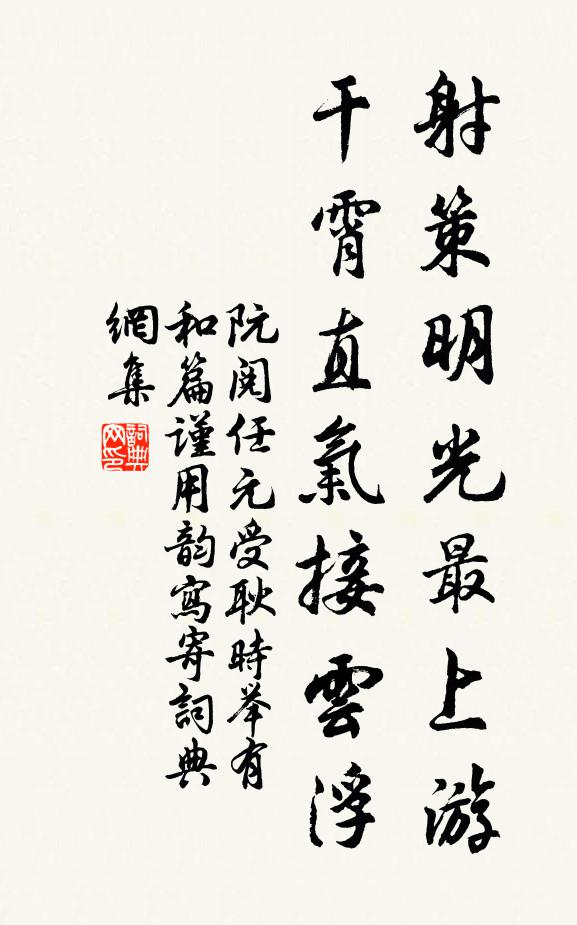 射策明光最上游
干霄直氣接雲浮
阮阅任元受耿時举有
和篇谨用韵寫寄詞典
網集
詞典
网印